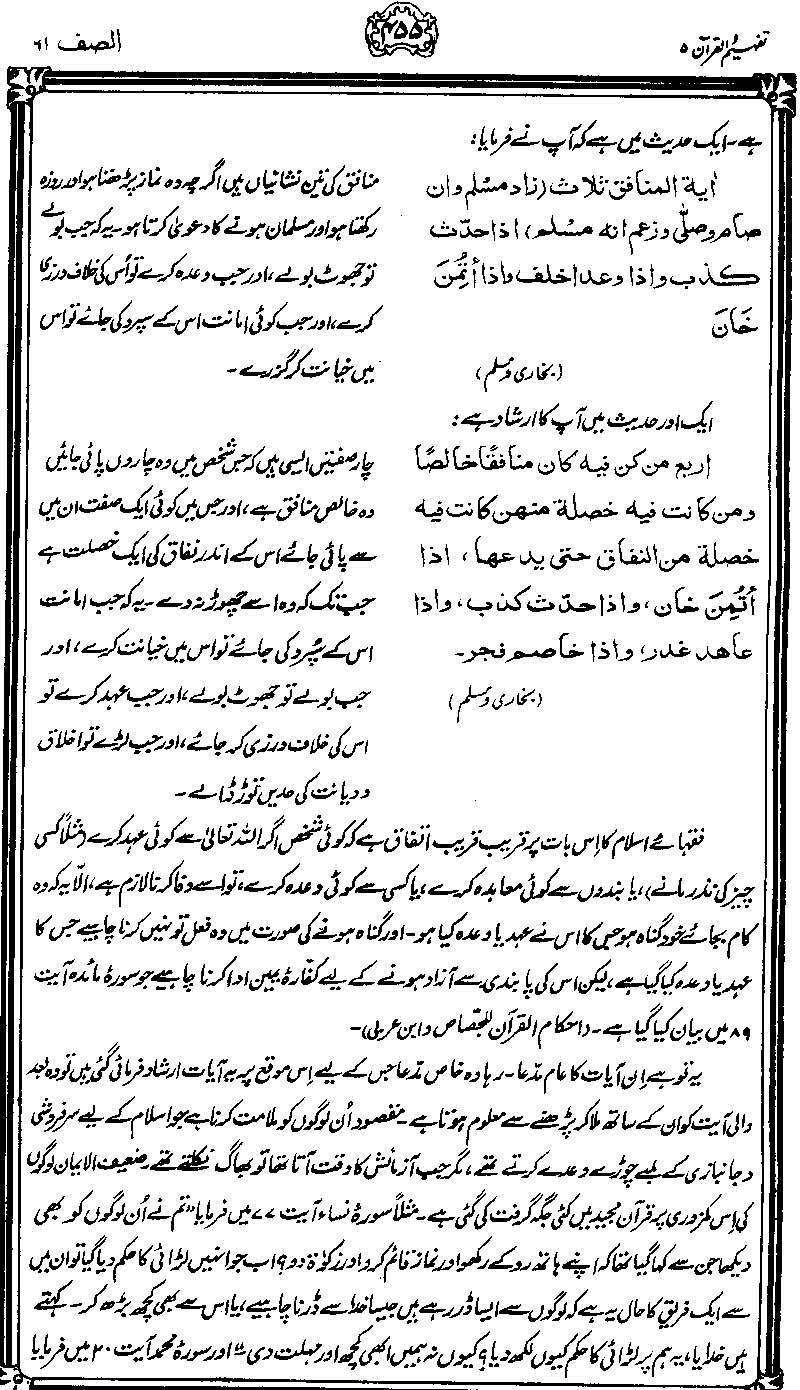 تفہیم القرآن ۵
۴۵۵
الصف ۶۱
ہے۔ ایک حدیث میں ہے کہ آپ نے فرمایا:
اٰیة المنافق ثلاث (زاد مسلم وان
صام وصلّٰی وزعم انه مسلم) اذا حدّث
کذب واذا وعد اخلف واذا أتُمِنَ
خَانَ
(بخاری و مسلم)
منافق کی تین نشانیاں ہیں اگرچہ وہ نماز پڑھتا ہو اور روزہ
رکھتا ہو اور مسلمان ہونے کا دعویٰ کرتا ہو۔ یہ کہ جب بولے
تو جھوٹ بولے، اور جب وعدہ کرے تو اُس کی خلاف ورزی
کرے، اور جب کوئی امانت اس کے سپرد کی جائے تو اس
میں خیانت کر گزرے۔
ایک اور حدیث میں آپ کا ارشاد ہے:
اربع من کن فیه کان منافقًا خالصًا
ومن کانت فیه خصلة منهن کانت فیه
خصلة من النفاق حتی یدعها، اذا
أتُمِنَ خان، واذا حدّث کذب، واذا
عاهد غدر، واذا خاصم فجر۔
(بخاری و مسلم)
چار صفتیں ایسی ہیں کہ جس شخص میں وہ چاروں پائی جائیں
وہ خالص منافق ہے، اور جس میں کوئی ایک صفت ان میں
سے پائی جائے اس کے اندر نفاق کی ایک خصلت ہے
جب تک کہ وہ اسے چھوڑ نہ دے۔ یہ کہ جب امانت
اس کے سُپرد کی جائے تو اس میں خیانت کرے، اور
جب بولے تو جھوٹ بولے، اور جب عہد کرے تو
اس کی خلاف ورزی کر جائے، اور جب لڑے تو اخلاق
و دیانت کی حدیں توڑ ڈالے۔
فقہائے اسلام کا اِس بات پر قریب قریب اتفاق ہے کہ کوئی شخص اگر اللہ تعالیٰ سے کوئی عہد کرے (مثلاً کسی
چیز کی نذر مانے)، یا بندوں سے کوئی معاہدہ کرے، یا کسی سے کوئی وعدہ کرے، تو اسے وفا کرنا لازم ہے، الّا یہ کہ وہ
کام بجائے خود گناہ ہو جس کا اس نے عہد یا وعدہ کیا ہو۔ اور گناہ ہونے کی صورت میں وہ فعل تو نہیں کرنا چاہیے جس کا
عہد یا وعدہ کیا گیا ہے، لیکن اس کی پابندی سے آزاد ہونے کے لیے کفّارۂ یمین ادا کرنا چاہیے جو سورۂ مائدہ آیت
۸۹ میں بیان کیا گیا ہے۔ (احکام القرآن للجصّاص و ابن عربی)۔
یہ تو ہے اِن آیات کا عام مدّعا۔ رہا وہ خاص مدّعا جس کے لیے اِس موقع پر یہ آیات ارشاد فرمائی گئی ہیں تو وہ بعد
والی آیت کو ان کے ساتھ ملا کر پڑھنے سے معلوم ہوتا ہے۔ مقصود اُن لوگوں کو ملامت کرنا ہے جو اسلام کے لیے سرفروشی
و جانبازی کے لمبے چوڑے وعدے کرتے تھے، مگر جب آزمائش کا وقت آتا تھا تو بھاگ نکلتے تھے۔ ضعیف الایمان لوگوں
کی اِس کمزوری پر قرآن مجید میں کئی جگہ گرفت کی گئی ہے۔ مثلاً سورۂ نساء آیت ۷۷ میں فرمایا ”تم نے اُن لوگوں کو بھی
دیکھا جن سے کہا گیا تھا کہ اپنے ہاتھ روکے رکھو اور نماز قائم کرو اور زکوٰۃ دو؟ اب جو انہیں لڑائی کا حکم دیا گیا تو ان میں
سے ایک فریق کا حال یہ ہے کہ لوگوں سے ایسا ڈر رہے ہیں جیسا خدا سے ڈرنا چاہیے، یا اس سے بھی کچھ بڑھ کر۔ کہتے
ہیں خدایا، یہ ہم پر لڑائی کا حکم کیوں لکھ دیا؟ کیوں نہ ہمیں ابھی کچھ اور مہلت دی“ اور سورۂ محمد آیت ۲۰ میں فرمایا